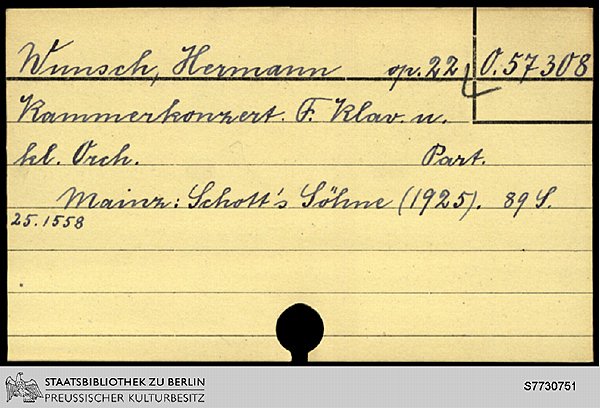 Wunsch, Hermann op. 22 O. 57308
Kammerkonzert. F. Klav. u.
kl. Orch. Part.
Mainz: Schott's Söhne (1925). 89 S.
25.1558
STAATSBIBLIOTHEK ZU BERLIN
PREUSSISCHER KULTURBESITZ
S7730751